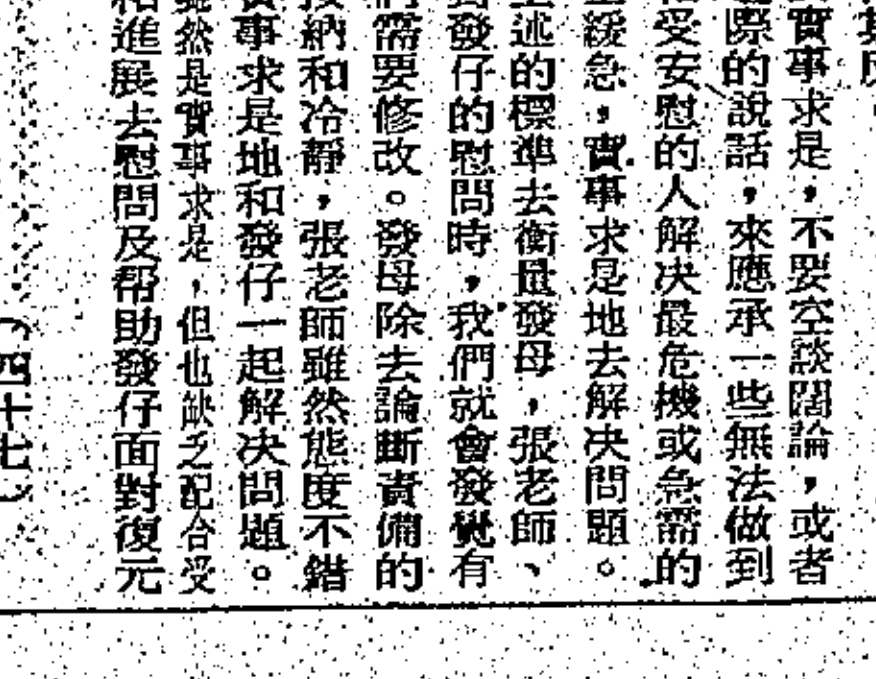 實事求是，不要空談闊論，或者
際的說話，來應承一些無法做到
受安慰的人解决最危機或急需的
緩急，實事求是地去解决問題。
述的標準去衡量發母，張老師、
發仔的慰問時，我們就會發覺有
需要修改。發母除去論斷責備的
納和冷靜，張老師雖然態度不錯
事求是地和發仔一起解决問題。
然是實事求是，但也缺乏配合受
進展去慰問及帮助發仔面對復元
（四十七）